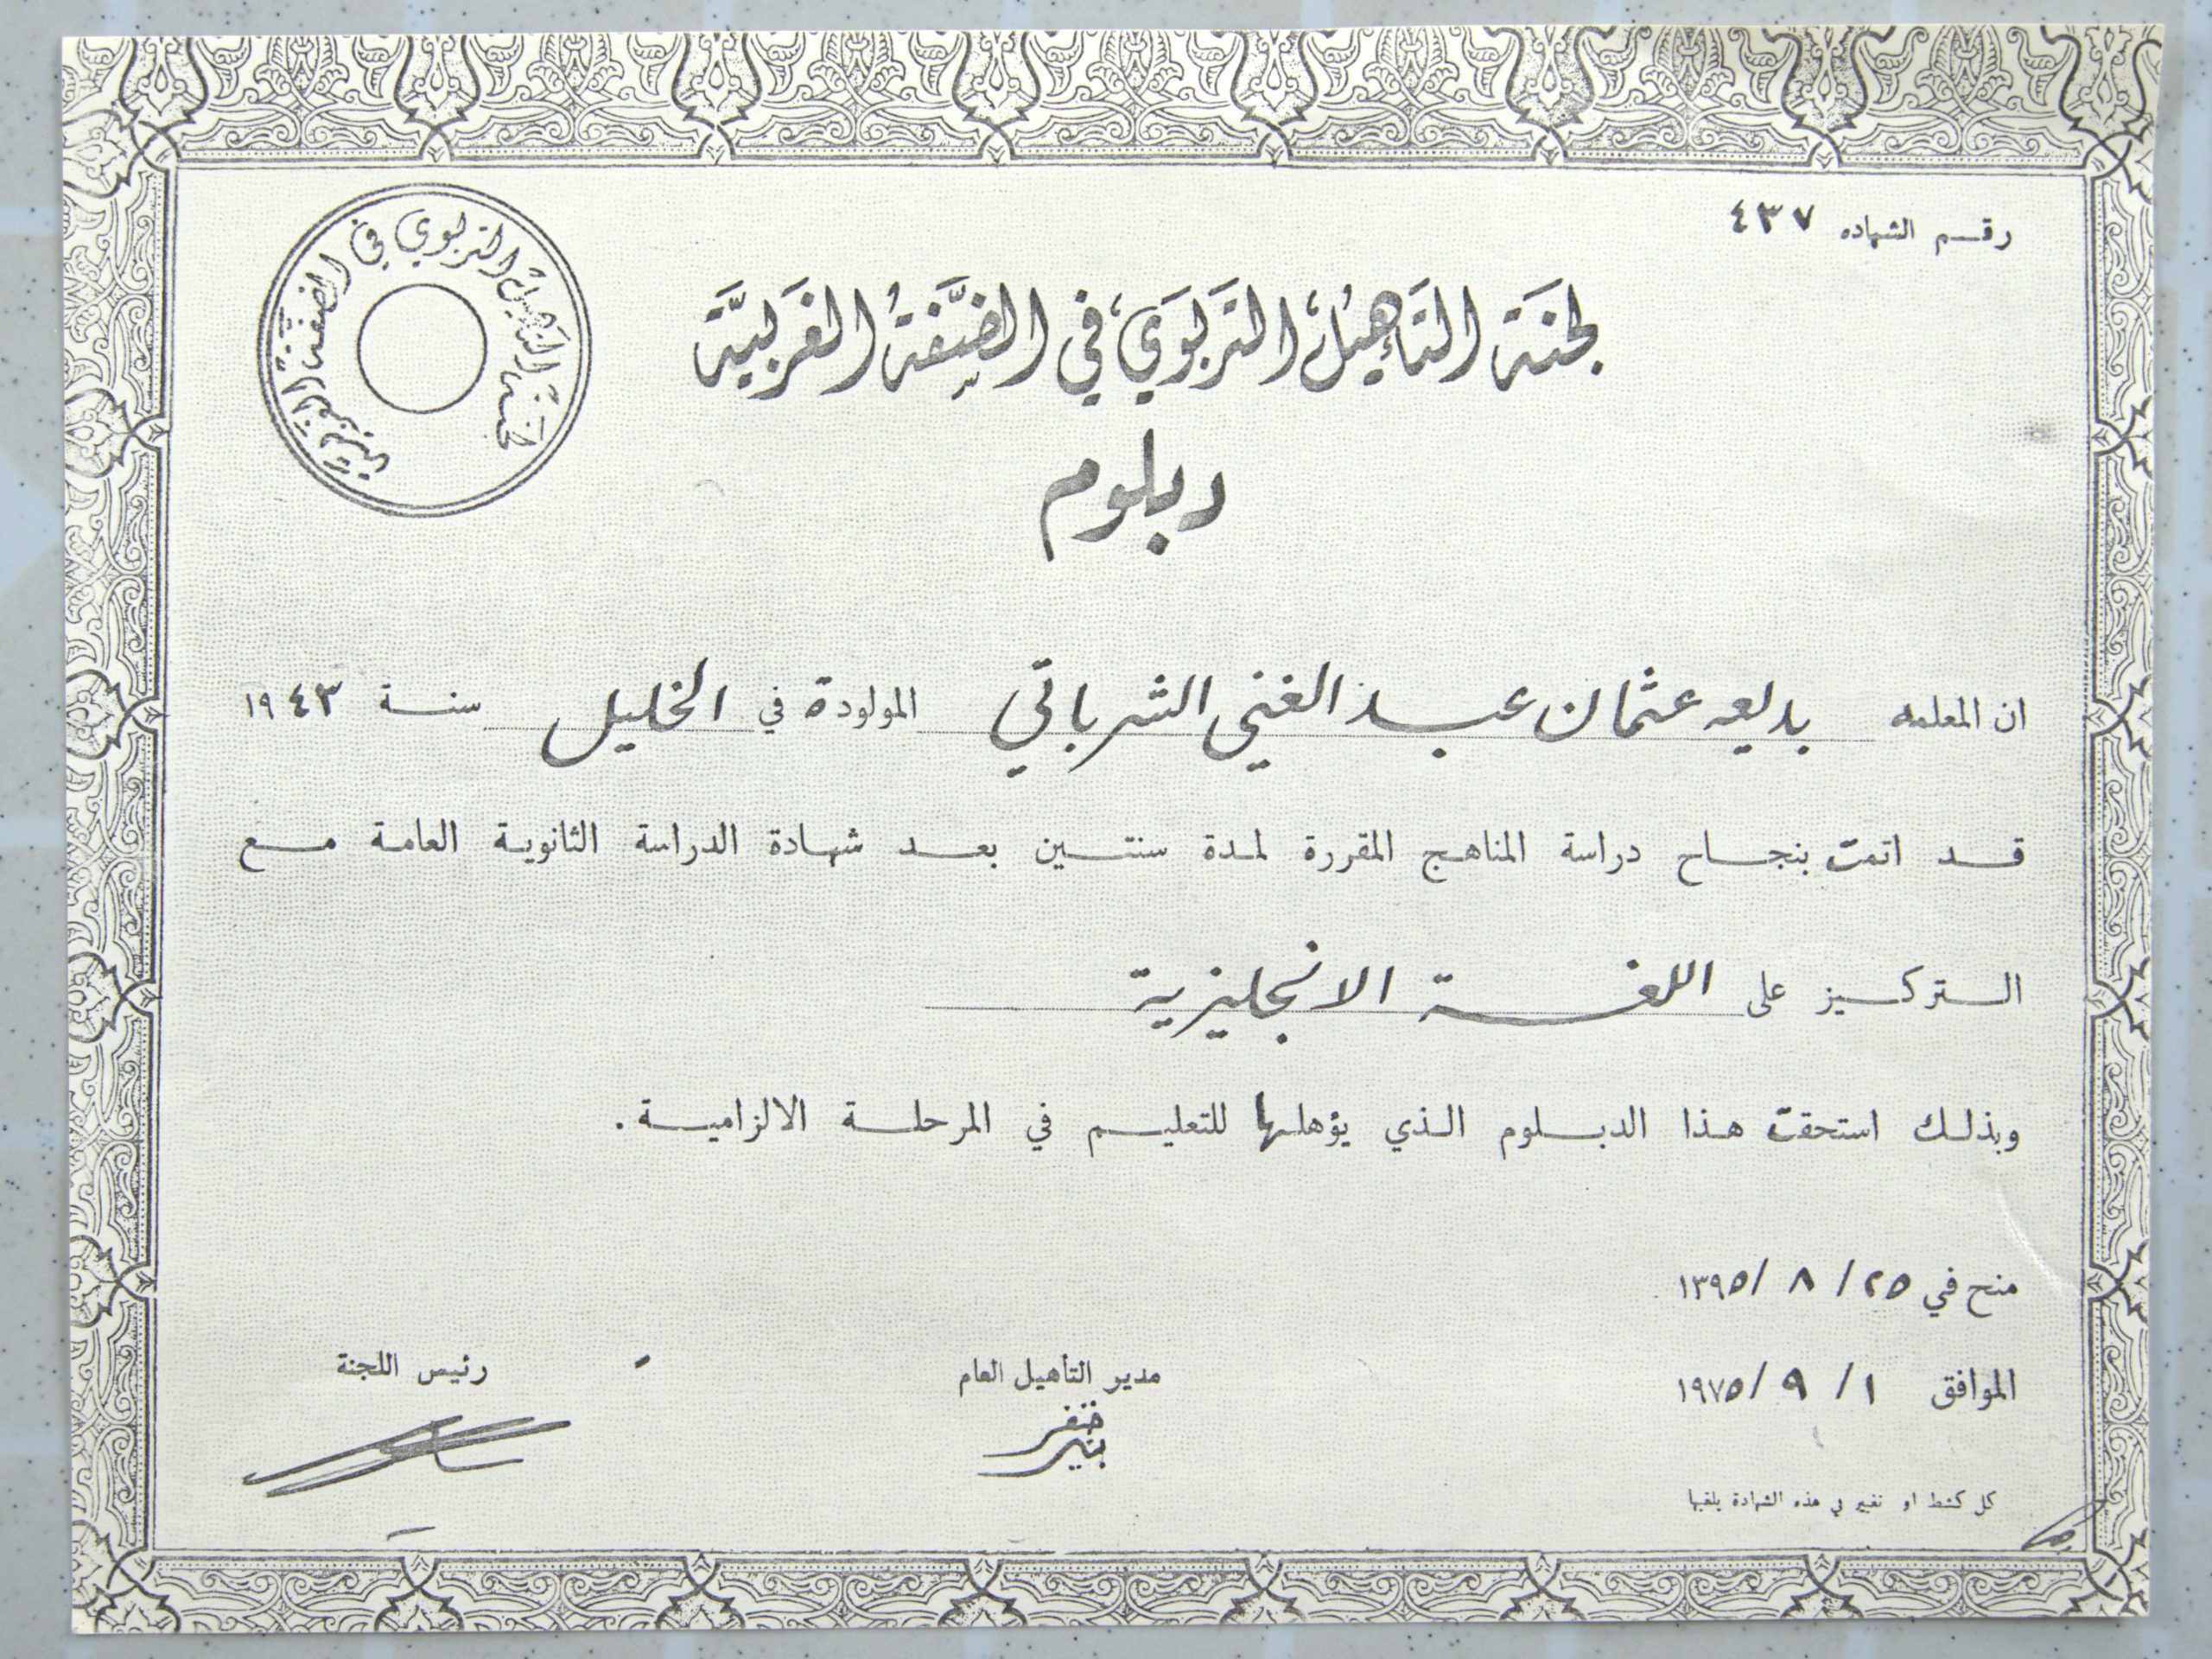 رقم الشهاده ٤٣٧
لجنة التأهيل التربوي في الضفة الغربية
لجنة التأهيل التربوي في الضفة الغربية
دبلوم
ان المعلمه بديعه عثمان عبد الغني الشرباتي المولودة في الخليل سنة ١٩٤٣
قد اتمت بنجاح دراسة المناهج المقررة لمدة سنتين بعد شهادة الدراسة الثانوية العامة مع
التركيز على اللغة الانجليزية
وبذلك استحقت هذا الدبلوم الذي يؤهلها للتعليم في المرحلة الالزامية.
منح في ٢٥ / ٨ / ١٣٩٥
الموافق ١ / ٩ / ١٩٧٥
مدير التأهيل العام
رئيس اللجنة
كل كشط او تغيير في هذه الشهادة يلغيها